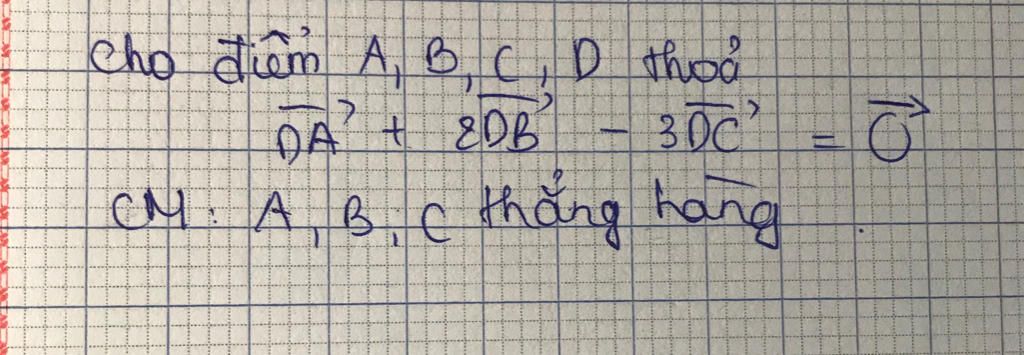 Cho điểm A, B, C, D thoả
$\overrightarrow{DA} + 2\overrightarrow{DB} - 3\overrightarrow{DC} = \overrightarrow{O}$
CM: A, B, C thẳng hàng.